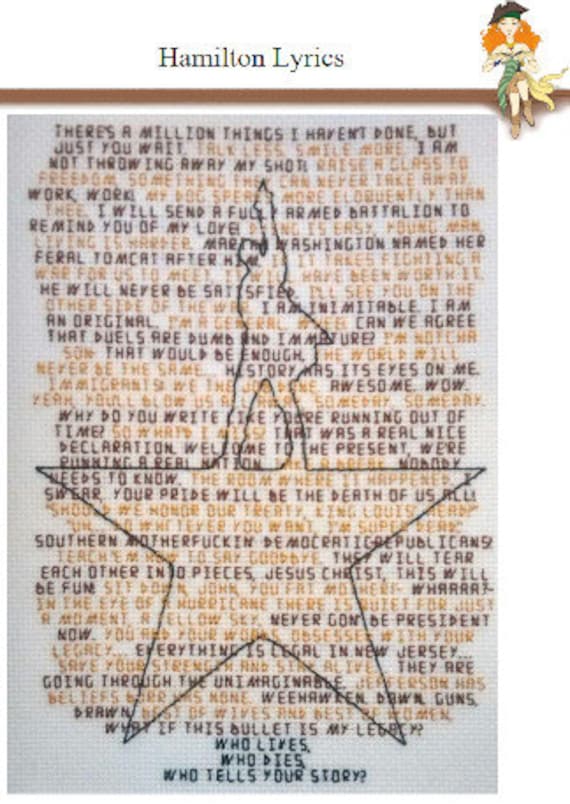 Hamilton Lyrics
THERE'S A MILLION THINGS I HAVEN'T DONE, BUT
JUST YOU WAIT. TALK LESS. SMILE MORE. I AM
NOT THROWING AWAY MY SHOT! RAISE A GLASS TO
FREEDOM, SOMETHING THEY CAN NEVER TAKE AWAY.
WORK, WORK! MY DOG SPEAKS MORE ELOQUENTLY THAN
THEE. I WILL SEND A FULLY ARMED BATTALION TO
REMIND YOU OF MY LOVE! IS EASY, YOUNG MAN.
LIVING IS HARDER. MARTHA WASHINGTON NAMED HER
FERAL TOMCAT AFTER HIM. IT TAKES FIGHTING A
WAR FOR US TO MEET, HAVE BEEN WORTH IT.
HE WILL NEVER BE SATISFIED. I'LL SEE YOU ON THE
OTHER SIDE OF THE WAR. I AM INIMITABLE. I AM
AN ORIGINAL. I'M A GENERAL. CAN WE AGREE
THAT DUELS ARE DUMB AND IMMATURE? I'M NOTCHA
SON. THAT WOULD BE ENOUGH. THE WORLD WILL
NEVER BE THE SAME. HISTORY HAS ITS EYES ON ME.
IMMIGRANTS! WE THE JOB DONE. AWESOME. WOW.
YEAH, YOU'LL BLOW US SOMEDAY, SOMEDAY.
WHY DO YOU WRITE LIKE YOU'RE RUNNING OUT OF
TIME? SO THAT WAS A REAL NICE
DECLARATION. WELCOME TO THE PRESENT, WE'RE
RUNNING A REAL NATION. NOBODY
NEEDS TO KNOW. THE ROOM WHERE IT HAPPENED. I
SWEAR, YOUR PRIDE WILL BE THE DEATH OF US ALL!
WE HONOR OUR TREATY, KING LOUIS' HEAD?
UH... DO WHATEVER YOU WANT, I'M SUPER DEAD.
SOUTHERN MOTHERFUCKIN' DEMOCRATIC-REPUBLICANS!
TEACH 'EM HOW TO SAY GOODBYE. THEY WILL TEAR
EACH OTHER INTO PIECES, JESUS CHRIST, THIS WILL
BE FUN! SIT DOWN, JOHN, YOU FAT MOTHERF- WHAAAA?-
IN THE EYE OF A HURRICANE THERE IS QUIET FOR JUST
A MOMENT, A YELLOW SKY. NEVER GON' BE PRESIDENT
NOW. YOU AND YOUR WORDS OBSESSED WITH YOUR
LEGACY... EVERYTHING IS LEGAL IN NEW JERSEY...
SAVE YOUR STRENGTH AND STAY ALIVE. THEY ARE
GOING THROUGH THE UNIMAGINABLE. JEFFERSON HAS
BELIEFS. BURR HAS NONE. WEEHAWKEN. DAWN. GUNS.
DRAWN. BEST OF WIVES AND BEST OF WOMEN.
WHAT IF THIS BULLET IS MY LEGACY?
WHO LIVES,
WHO DIES,
WHO TELLS YOUR STORY?